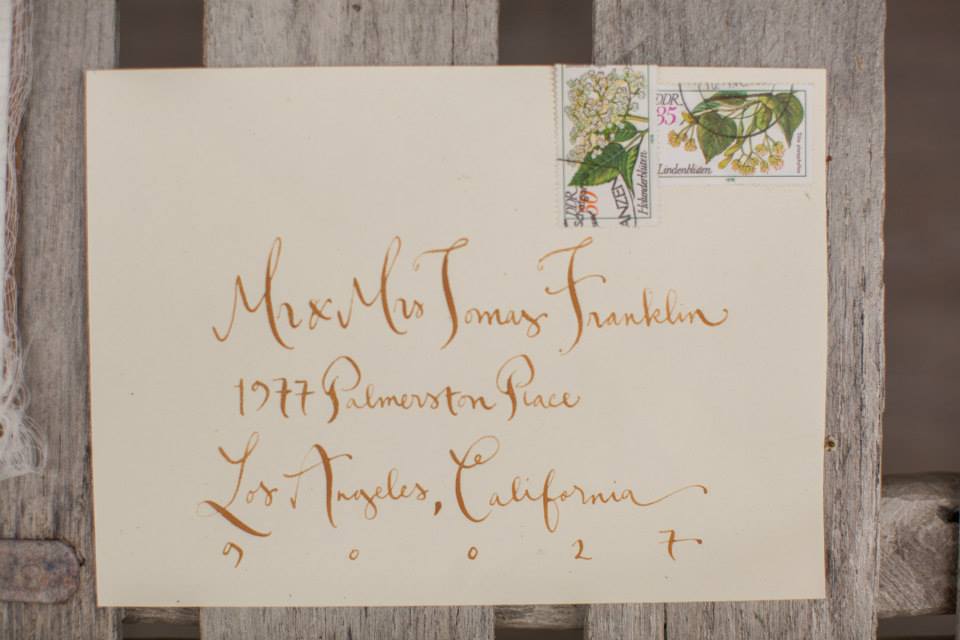 DDR
35
Lindenblüten
1978
DDR
50
Holunderblüten
ANZEN
Mr & Mrs Tomas Franklin
1977 Palmerston Place
Los Angeles, California
9 0 0 2 7